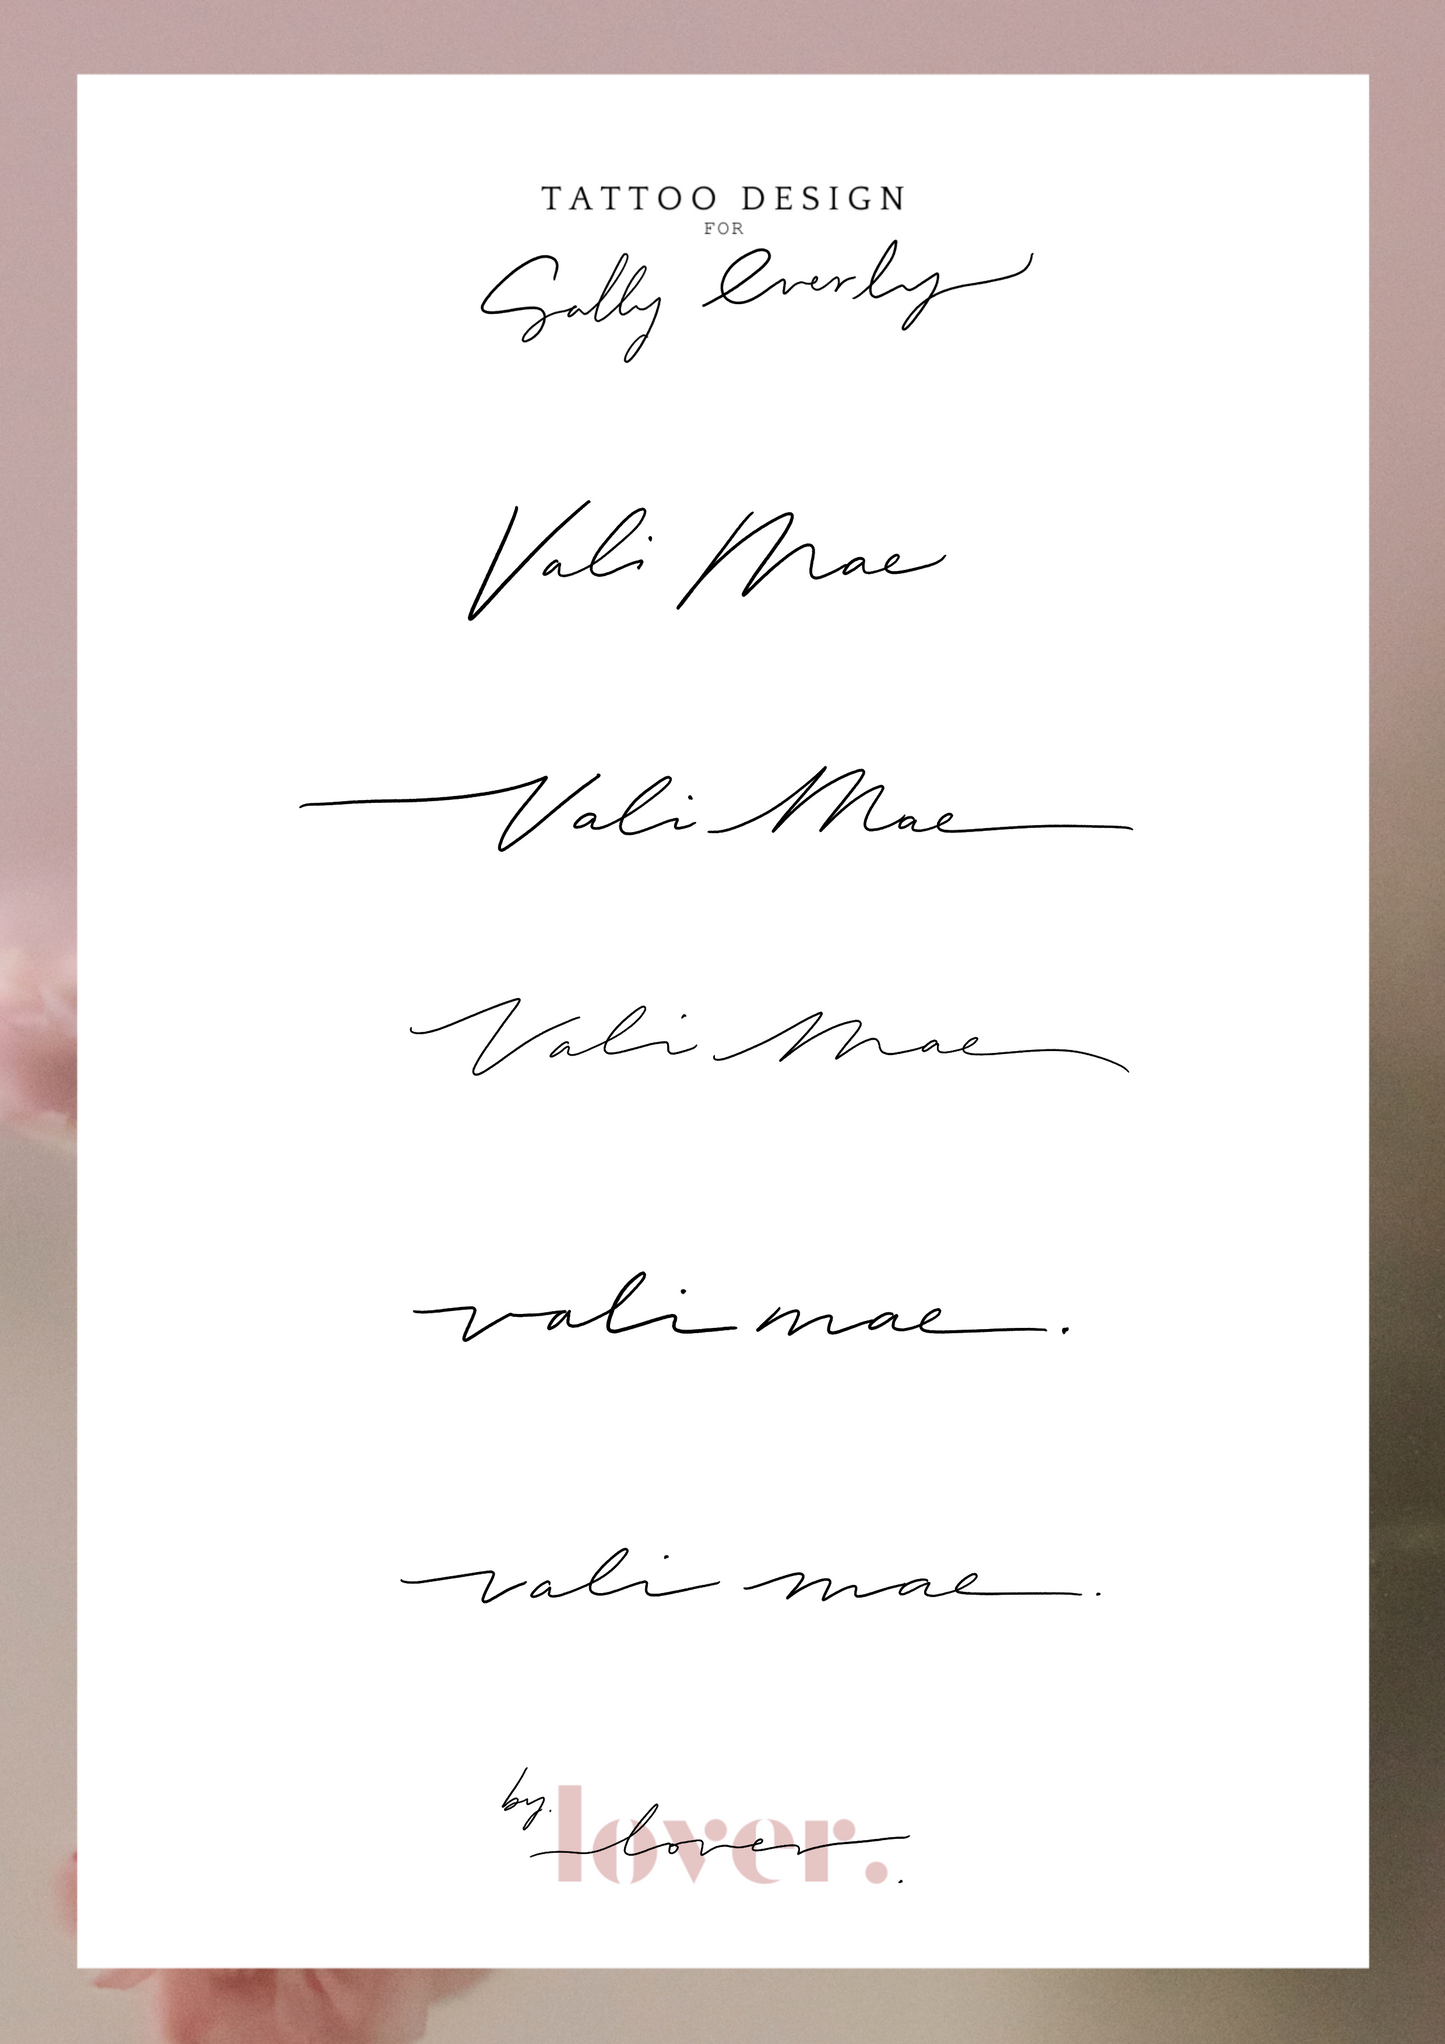 TATTOO DESIGN
FOR
Sally Everly
Vali Mae
Vali Mae
Vali Mae
vali mae.
vali mae.
by.
lover.
lover.